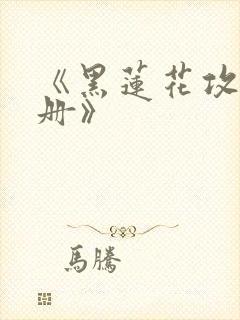 《黑蓮花攻
册》
馬騰